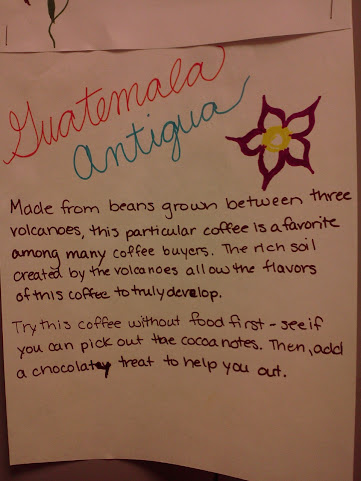 Guatemala
antigua
Made from beans grown between three
volcanoes, this particular coffee is a favorite
among many coffee buyers. The rich soil
created by the volcanoes allow the flavors
of this coffee to truly develop.
Try this coffee without food first - see if
you can pick out the cocoa notes. Then, add
a chocolatey treat to help you out.